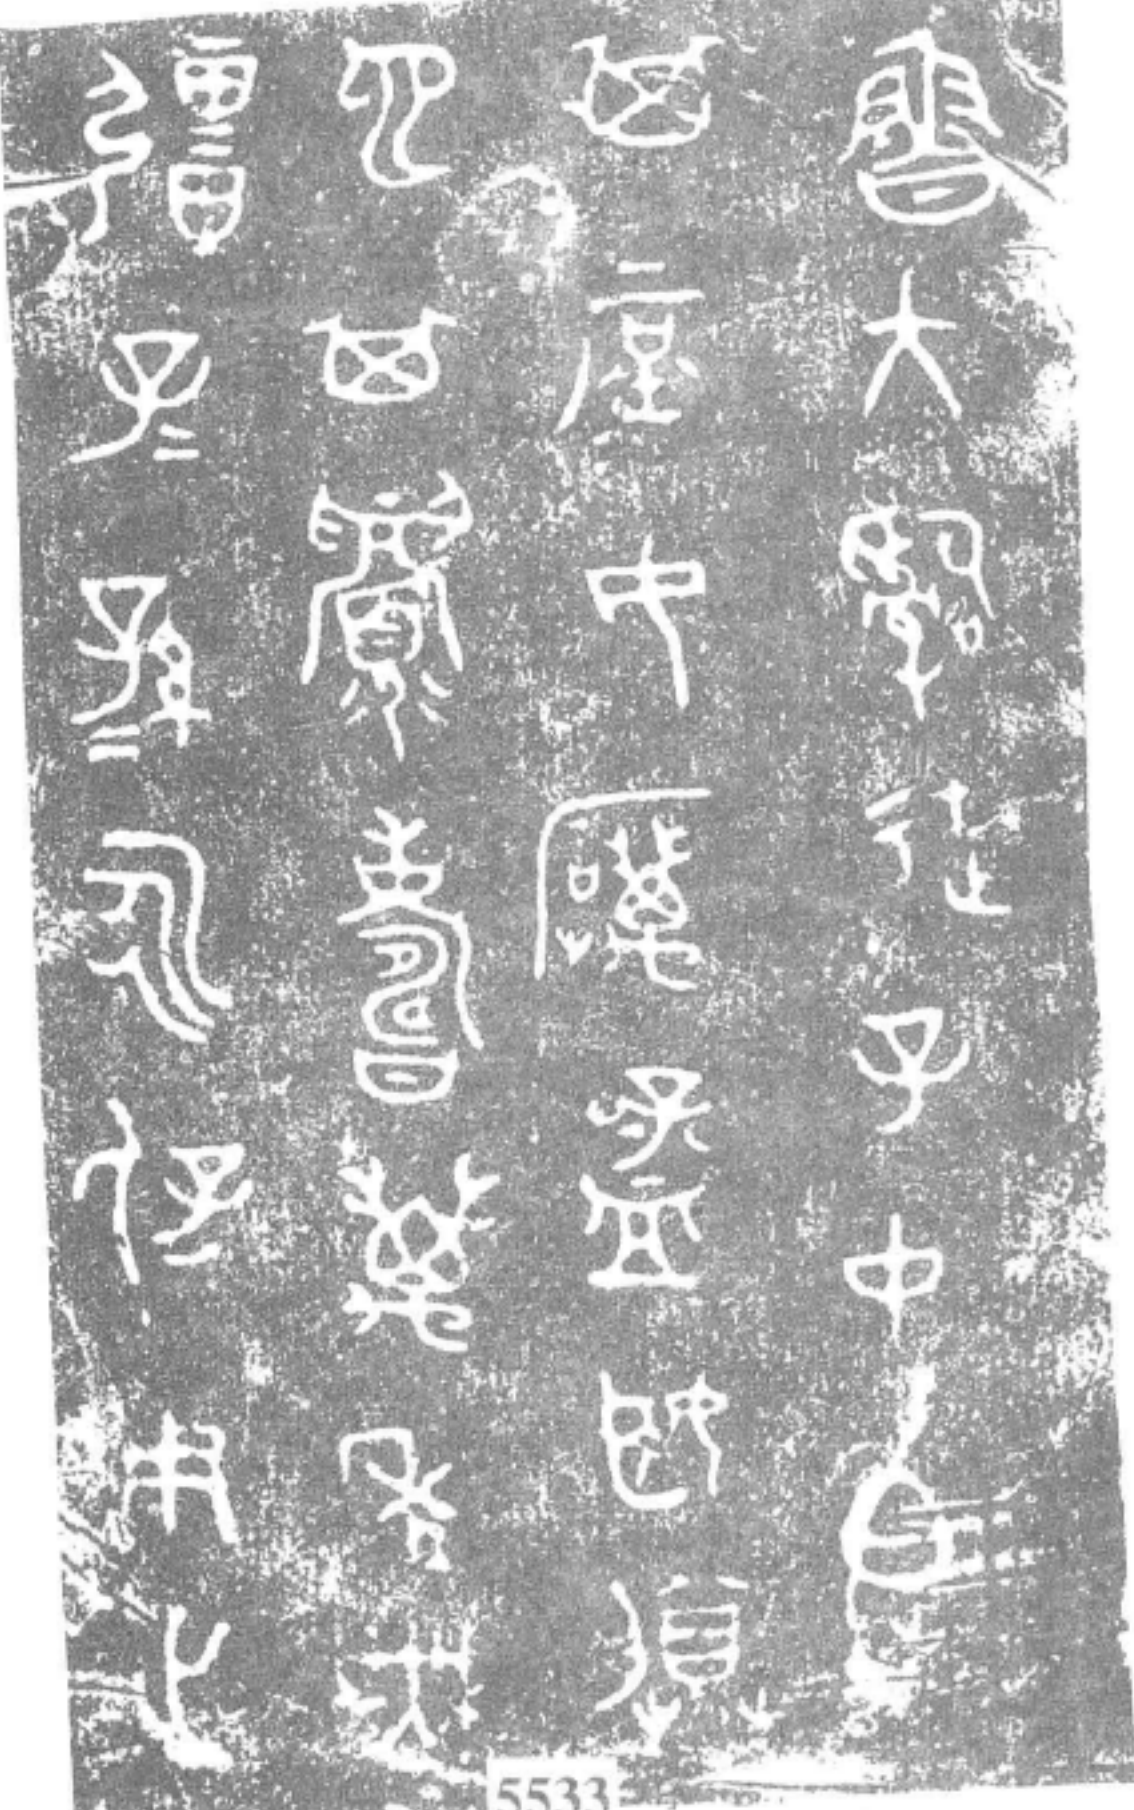 魯大𤔲徒子中白
其庶女厲孟姬媵
它其眉壽萬年無
疆子=孫=永保用之
5533